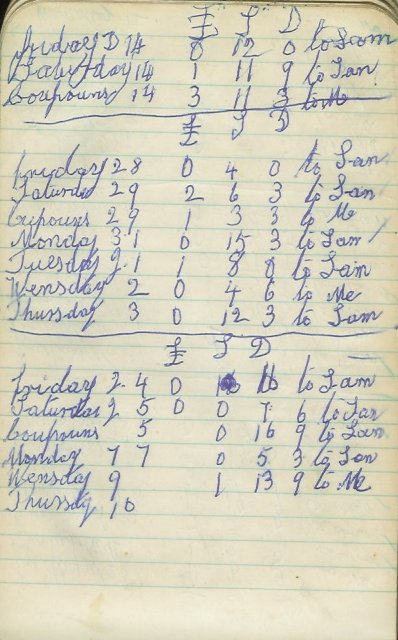 £ S D
Friday D 14 0 12 0 to Sam
Saturday 14 1 11 9 to Sam
Coupouns 14 3 11 3 to Me
£ S D
Friday 28 0 4 0 to Sam
Saturday 29 2 6 3 to Sam
Cupouns 29 1 3 3 to Me
Monday 31 0 15 3 to Sam
Tuesday 1 1 8 0 to Sam
Wensday 2 0 4 6 to Me
Thursday 3 0 12 3 to Sam
£ S D
Friday 4 0 to Sam
Saturday 5 0 0 7 6 to Sam
Coupouns 5 0 16 9 to Sam
Monday 7 0 5 3 to Sam
Wensday 9 1 13 9 to Me
Thursday 10